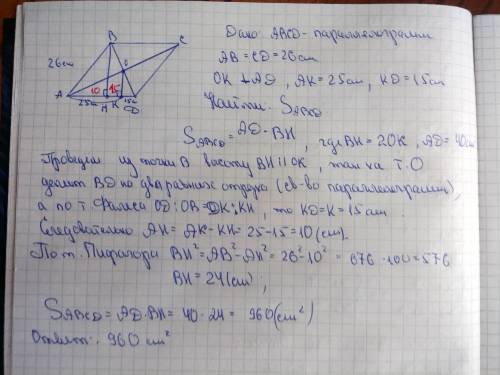 B C
O
26см
10 15
A 25см H K 15см D
Дано: ABCD - параллелограмм
AB = CD = 26см
OK ⊥ AD, AK = 25см, KD = 15см
Найти: S ABCD
S ABCD = AD · BH, где BH = 2OK, AD = 40см
Проведем из точки B высоту BH || OK, так как т. O
делит BD на два равных отрезка (св-во параллелограмма),
а по т. Фалеса OD : OB = DK : KH, то KD = K = 15см.
Следовательно AH = AK - KH = 25 - 15 = 10 (см).
По т. Пифагора BH² = AB² - AH² = 26² - 10² = 676 - 100 = 576
BH = 24 (см);
S ABCD = AD · BH = 40 · 24 = 960 (см²)
Ответ: 960 см²